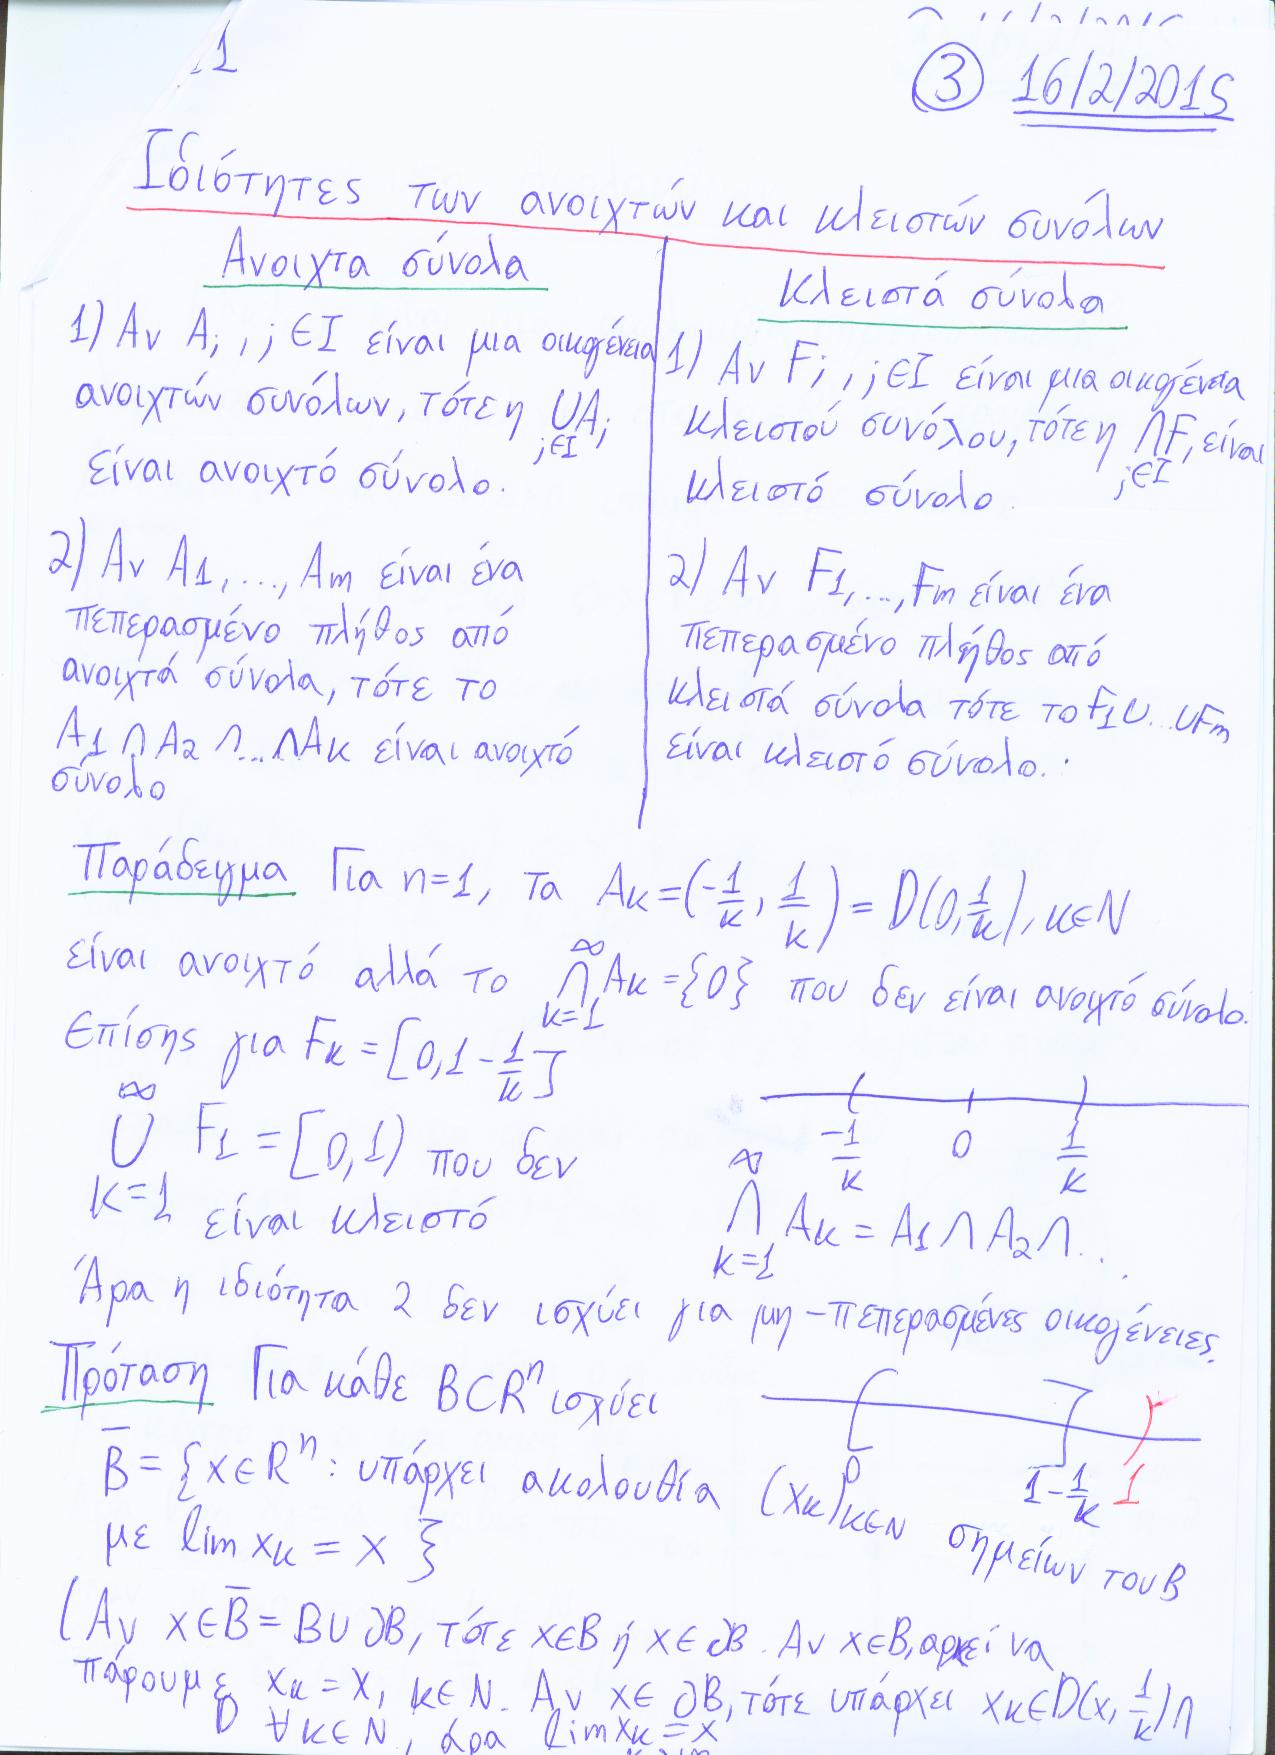 1
③ 16/2/2015
Ιδιότητες των ανοιχτών και κλειστών συνόλων
Ανοιχτα σύνολα
1) Αν Aj, j∈I είναι μια οικογένεια
ανοιχτών συνόλων, τότε η ∪Aj
j∈I
είναι ανοιχτό σύνολο.
2) Αν A1,..., Am είναι ένα
πεπερασμένο πλήθος από
ανοιχτά σύνολα, τότε το
A1 ∩ A2 ∩...∩Ak είναι ανοιχτό
σύνολο
Κλειστά σύνολα
1) Αν Fj, j∈I είναι μια οικογένεια
κλειστού συνόλου, τότε η ∩Fj είναι
j∈I
κλειστό σύνολο.
2) Αν F1,...,Fm είναι ένα
πεπερασμένο πλήθος από
κλειστά σύνολα τότε το F1∪...∪Fm
είναι κλειστό σύνολο.
Παράδειγμα Για n=1, τα Ak=(-1/k, 1/k) = D(0,1/k), k∈N
∞
είναι ανοιχτό αλλά το ∩Ak={0} που δεν είναι ανοιχτό σύνολο.
k=1
Επίσης για Fk=[0,1-1/k]
∞
∪ F1=[0,1) που δεν
k=1
είναι κλειστό
-1/k 0 1/k
∞
∩ Ak = A1 ∩ A2 ∩...
k=1
Άρα η ιδιότητα 2 δεν ισχύει για μη-πεπερασμένες οικογένειες.
Πρόταση Για κάθε B⊂Rⁿ ισχύει
0 1-1/k 1
B̅ = {x∈Rⁿ: υπάρχει ακολουθία (xk)k∈N σημείων του B
με lim xk = x }
(Αν x∈B̅ = B∪∂B, τότε x∈B ή x∈∂B. Αν x∈B, αρκεί να
πάρουμε xk=x, k∈N. Αν x∈∂B, τότε υπάρχει xk∈D(x,1/k)∩
B ∀k∈N, άρα lim xk = x